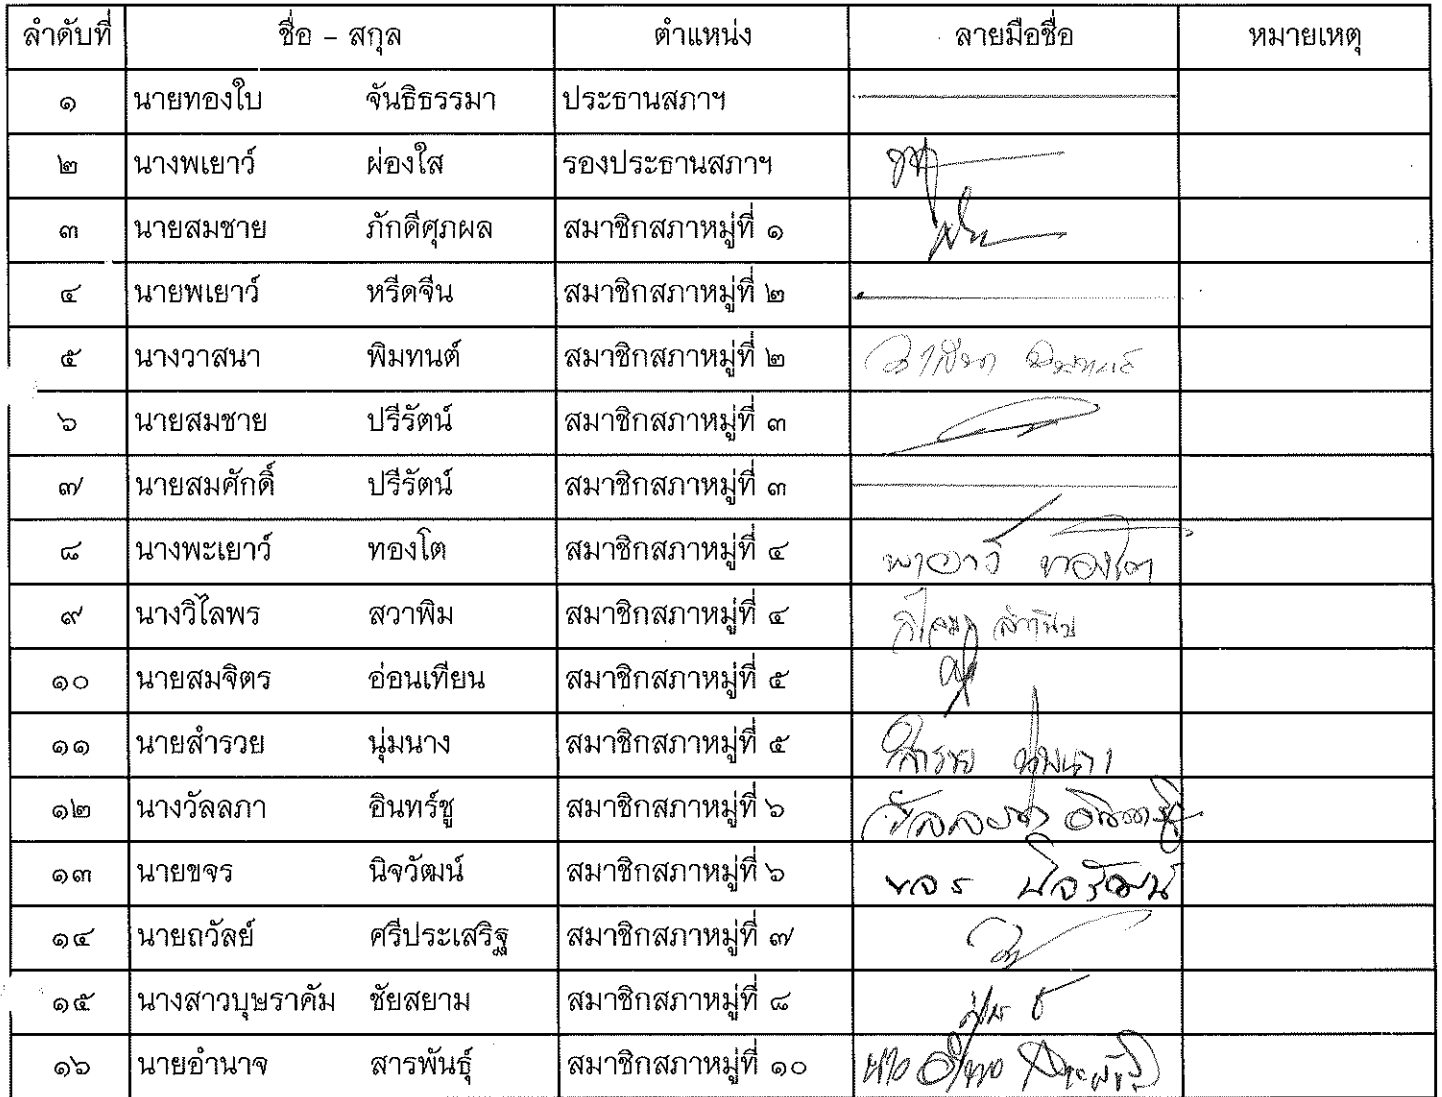 ลำดับที่ ชื่อ - สกุล ตำแหน่ง ลายมือชื่อ หมายเหตุ
๑ นายทองใบ จันธิธรรมา ประธานสภาฯ
๒ นางพเยาว์ ผ่องใส รองประธานสภาฯ
๓ นายสมชาย ภักดีศุภผล สมาชิกสภาหมู่ที่ ๑
๔ นายพเยาว์ หรีดจีน สมาชิกสภาหมู่ที่ ๒
๕ นางวาสนา พิมทนต์ สมาชิกสภาหมู่ที่ ๒
๖ นายสมชาย ปรีรัตน์ สมาชิกสภาหมู่ที่ ๓
๗ นายสมศักดิ์ ปรีรัตน์ สมาชิกสภาหมู่ที่ ๓
๘ นางพะเยาว์ ทองโต สมาชิกสภาหมู่ที่ ๔ ทองโต
๙ นางวิไลพร สวาพิม สมาชิกสภาหมู่ที่ ๔
๑๐ นายสมจิตร อ่อนเทียน สมาชิกสภาหมู่ที่ ๕
๑๑ นายสำรวย นุ่มนาง สมาชิกสภาหมู่ที่ ๕ สำรวย นุ่มนาง
๑๒ นางวัลลภา อินทร์ชู สมาชิกสภาหมู่ที่ ๖
๑๓ นายขจร นิจวัฒน์ สมาชิกสภาหมู่ที่ ๖ ขจร นิจวัฒน์
๑๔ นายถวัลย์ ศรีประเสริฐ สมาชิกสภาหมู่ที่ ๗
๑๕ นางสาวบุษราคัม ชัยสยาม สมาชิกสภาหมู่ที่ ๘
๑๖ นายอำนาจ สารพันธุ์ สมาชิกสภาหมู่ที่ ๑๐